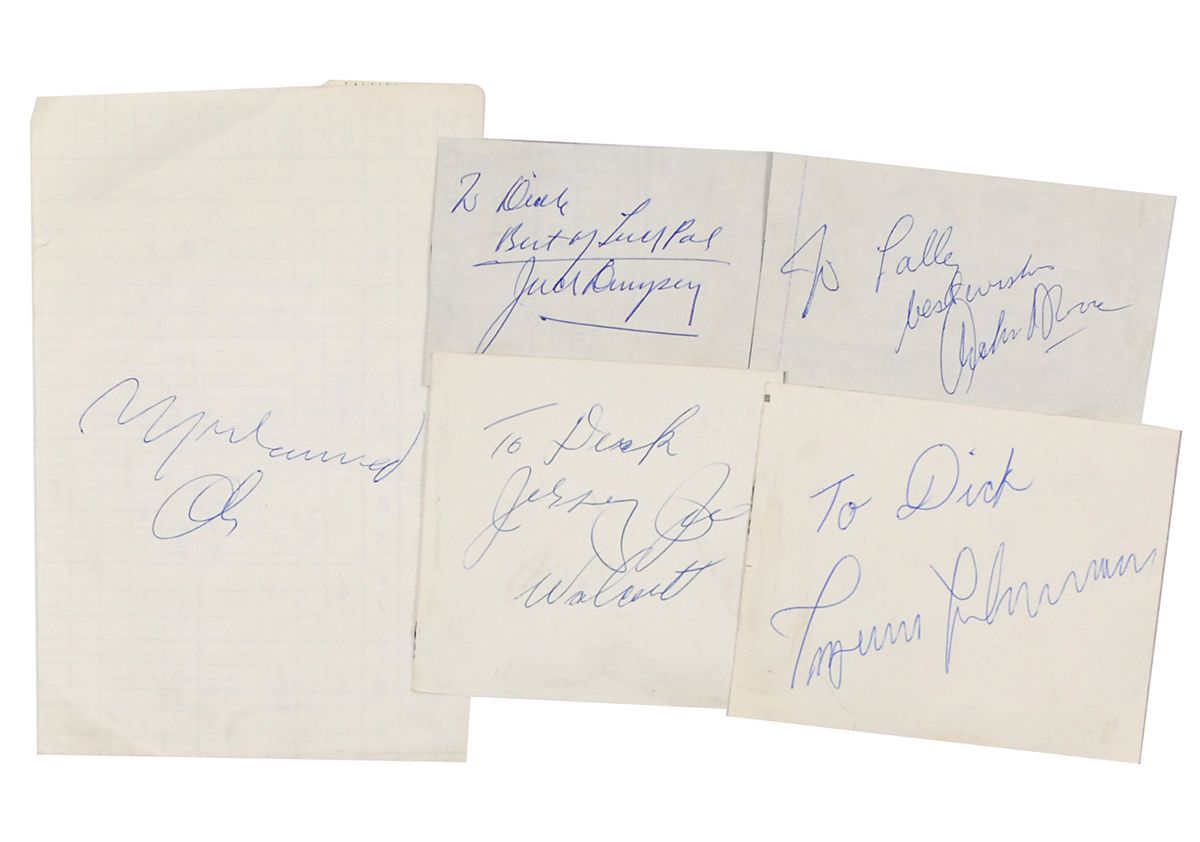 Muhammad
Ali
To Dick
Best of Luck Pal
Jack Dempsey
To
best wishes
To Dick
Jersey Joe
Walcott
To Dick